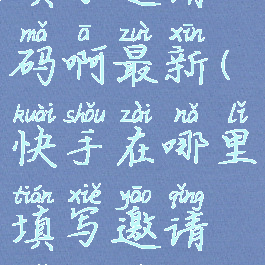 mǎ ā zuì xīn
码啊最新(
kuài shǒu zài nǎ lǐ
快手在哪里
tián xiě yāo qǐng
填写邀请